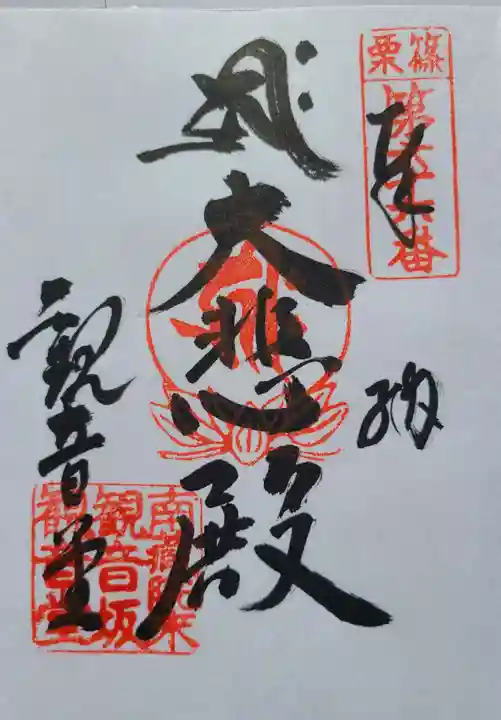 篠栗
第六十六番
奉納
大悲殿
観音堂
南蔵院末
観音坂
観音堂